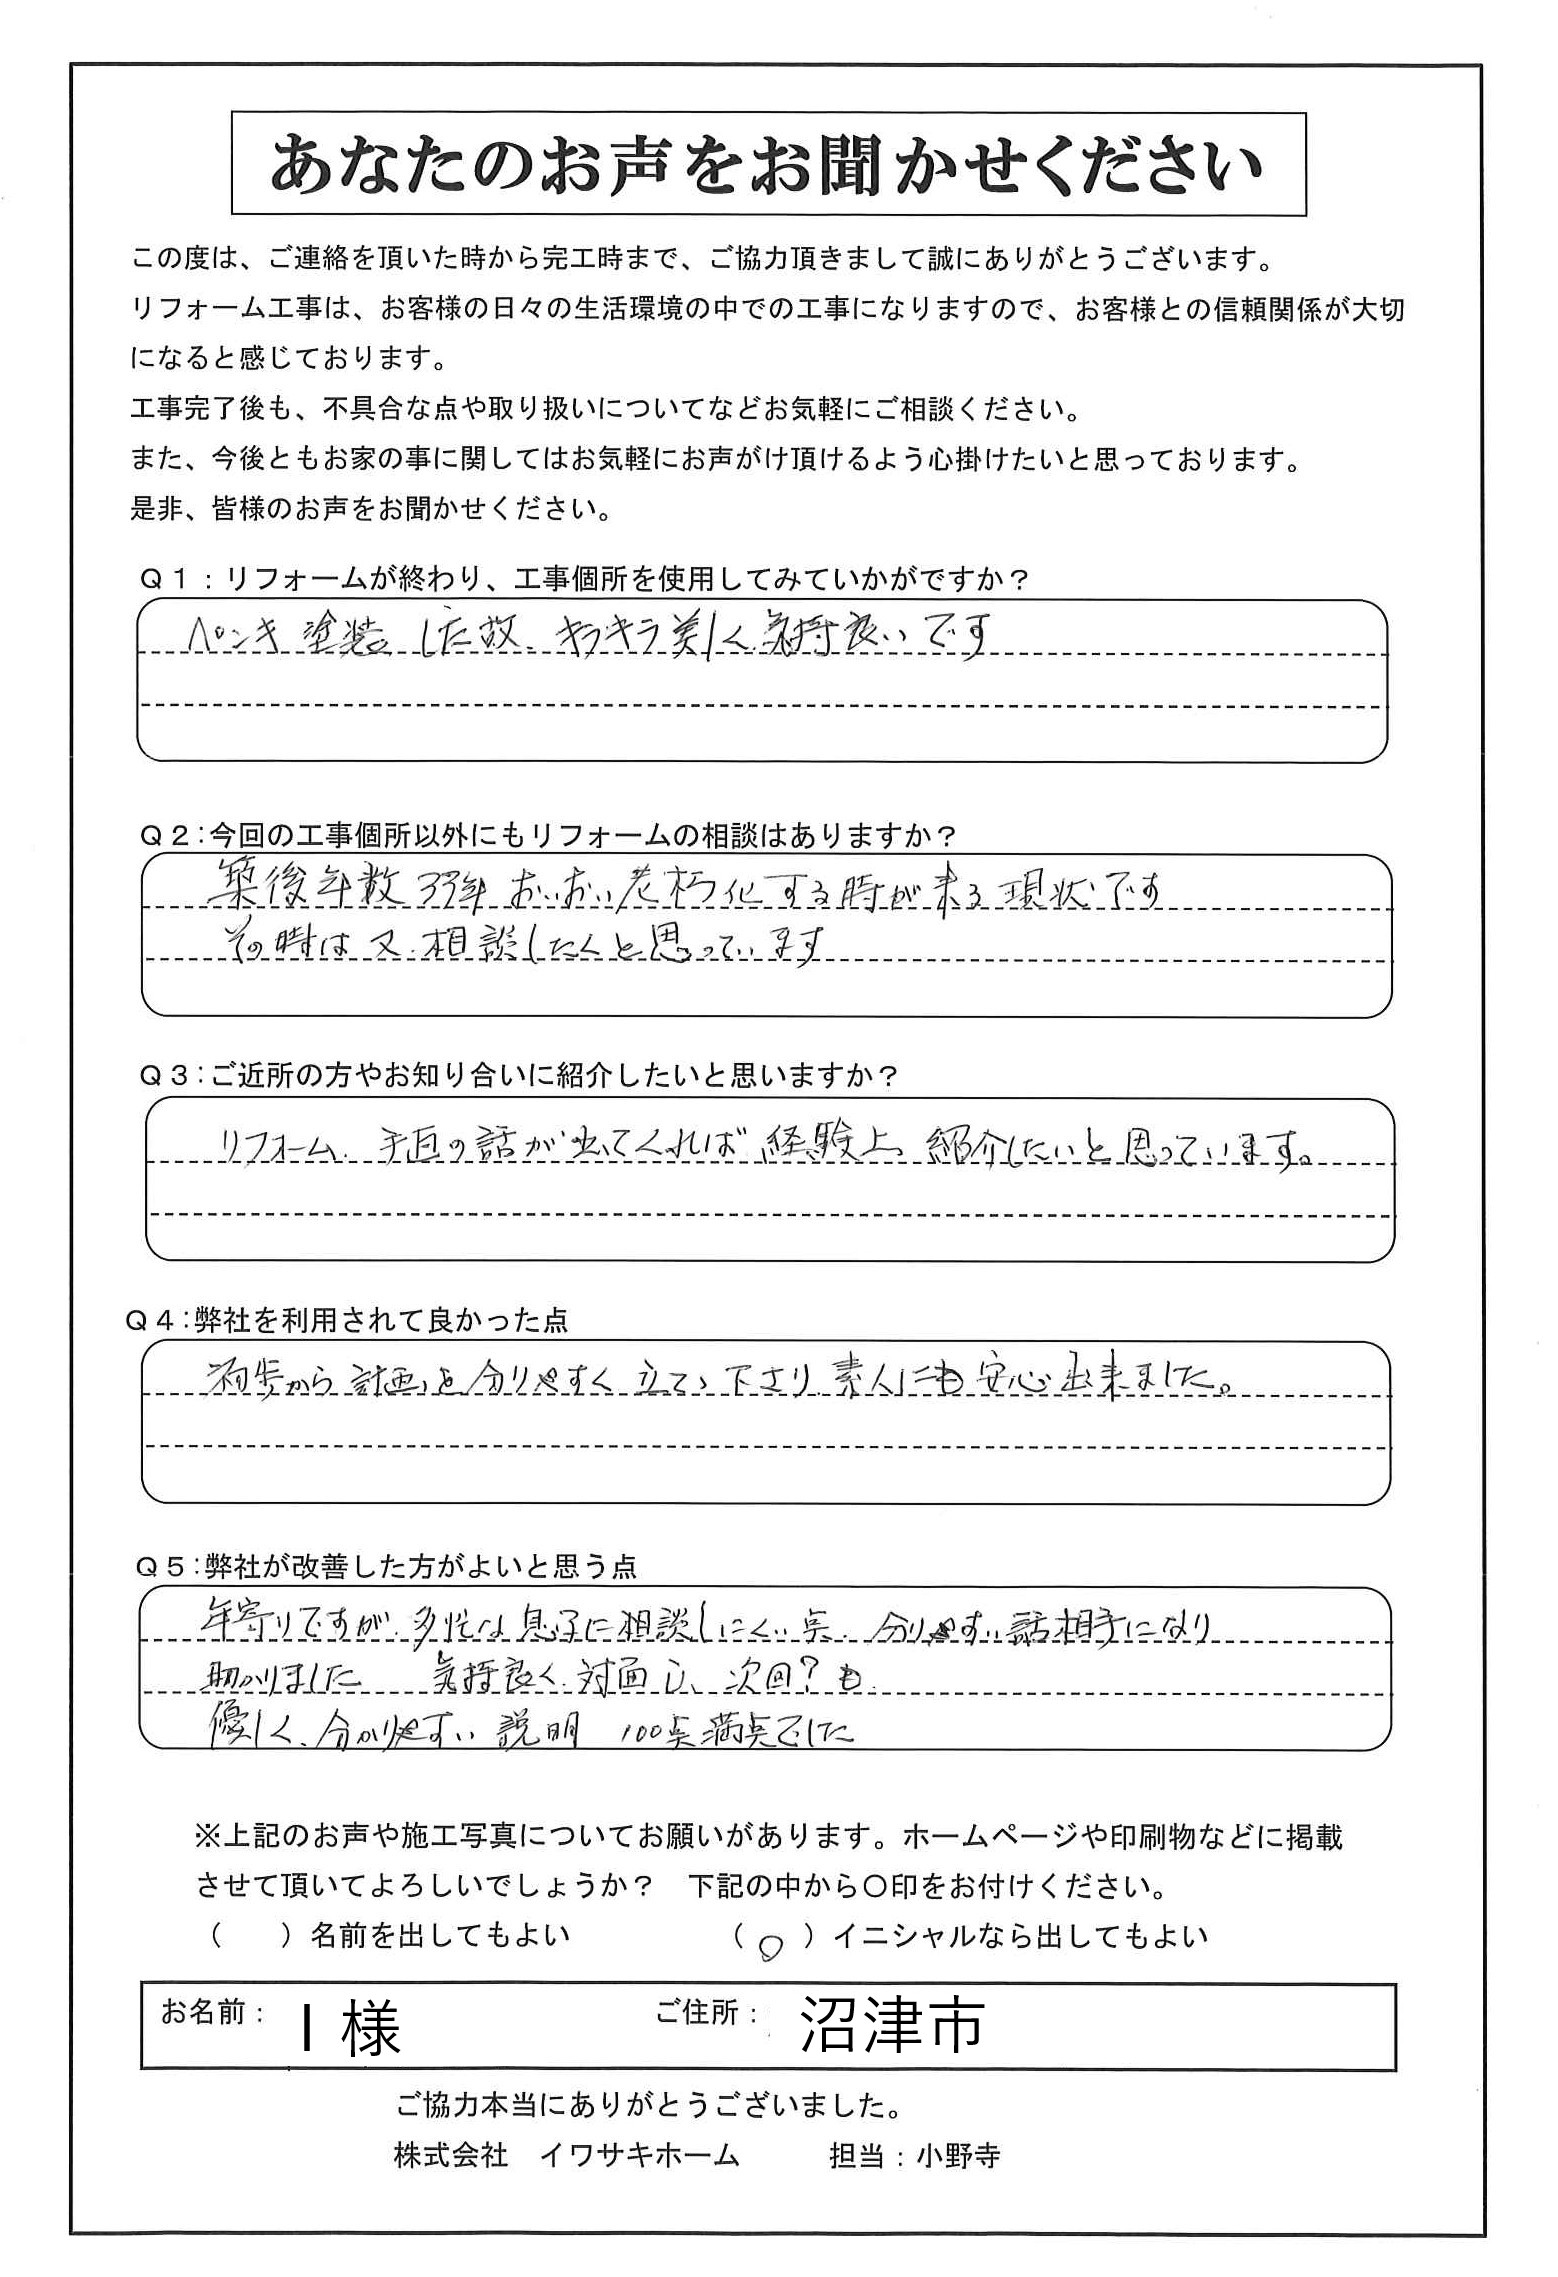 あなたのお声をお聞かせください
この度は、ご連絡を頂いた時から完工時まで、ご協力頂きまして誠にありがとうございます。
リフォーム工事は、お客様の日々の生活環境の中での工事になりますので、お客様との信頼関係が大切
になると感じております。
工事完了後も、不具合な点や取り扱いについてなどお気軽にご相談ください。
また、今後ともお家の事に関してはお気軽にお声がけ頂けるよう心掛けたいと思っております。
是非、皆様のお声をお聞かせください。
Q1：リフォームが終わり、工事個所を使用してみていかがですか？
ペンキ塗装した故、キラキラ美しく気持良いです
Q2：今回の工事個所以外にもリフォームの相談はありますか？
築後年数33年おいおい老朽化する時が来る現状です
その時は又、相談したくと思っています
Q3：ご近所の方やお知り合いに紹介したいと思いますか？
リフォーム、手直の話が出てくれば経験上、紹介したいと思っています。
Q4：弊社を利用されて良かった点
初歩から計画を分りやすく立てゝ下さり、素人にも安心出来ました。
Q5：弊社が改善した方がよいと思う点
年寄りですが、多忙な息子に相談しにくい点、分りやすい話相手になり
助かりました 気持良く、対面し、次回？も
優しく、分かりやすい説明 100点満点でした
※上記のお声や施工写真についてお願いがあります。ホームページや印刷物などに掲載
させて頂いてよろしいでしょうか？ 下記の中から〇印をお付けください。
（ ）名前を出してもよい （〇）イニシャルなら出してもよい
お名前： I 様 ご住所： 沼津市
ご協力本当にありがとうございました。
株式会社 イワサキホーム 担当：小野寺